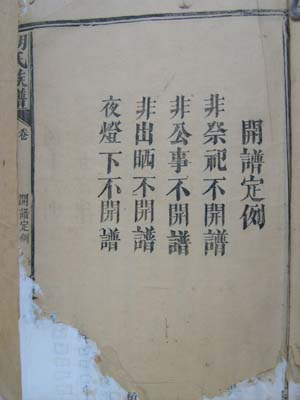 開譜定例
非祭祀不開譜
非公事不開譜
非出晒不開譜
夜燈下不開譜
胡氏族譜
卷
開譜定例